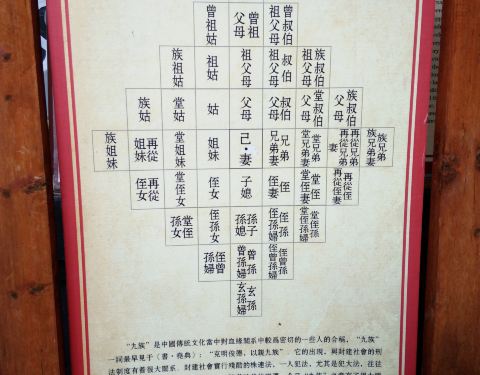 曾祖姑 曾祖父母 曾叔伯父母
族祖姑 祖姑 祖父母 叔伯祖父母 族叔伯祖父母
族姑 堂姑 姑 父母 叔伯父母 堂叔伯父母 族叔伯父母
族姐妹 再從姐妹 堂姐妹 姐妹 己・妻 兄弟兄弟妻 堂兄弟堂兄弟妻 再從兄弟再從兄弟妻 族兄弟族兄弟妻
再從侄女 堂侄女 侄女 子媳 侄侄妻 堂侄堂侄妻 再從侄再從侄妻
堂侄孫女 侄孫女 孫子孫媳 侄孫侄孫婦 堂侄孫堂侄孫婦
侄曾孫婦 曾孫曾孫婦 侄曾孫侄曾孫婦
玄孫玄孫婦
“九族”是中國傳統文化當中對血緣關系中較爲密切的一些人的合稱，“九族”
一詞最早見于《書·堯典》：“克明俊德，以親九族”。它的出現，與封建社會的刑
法制度有着很大關系，封建社會實行殘酷的株連法，一人犯法，尤其是犯大法，往往